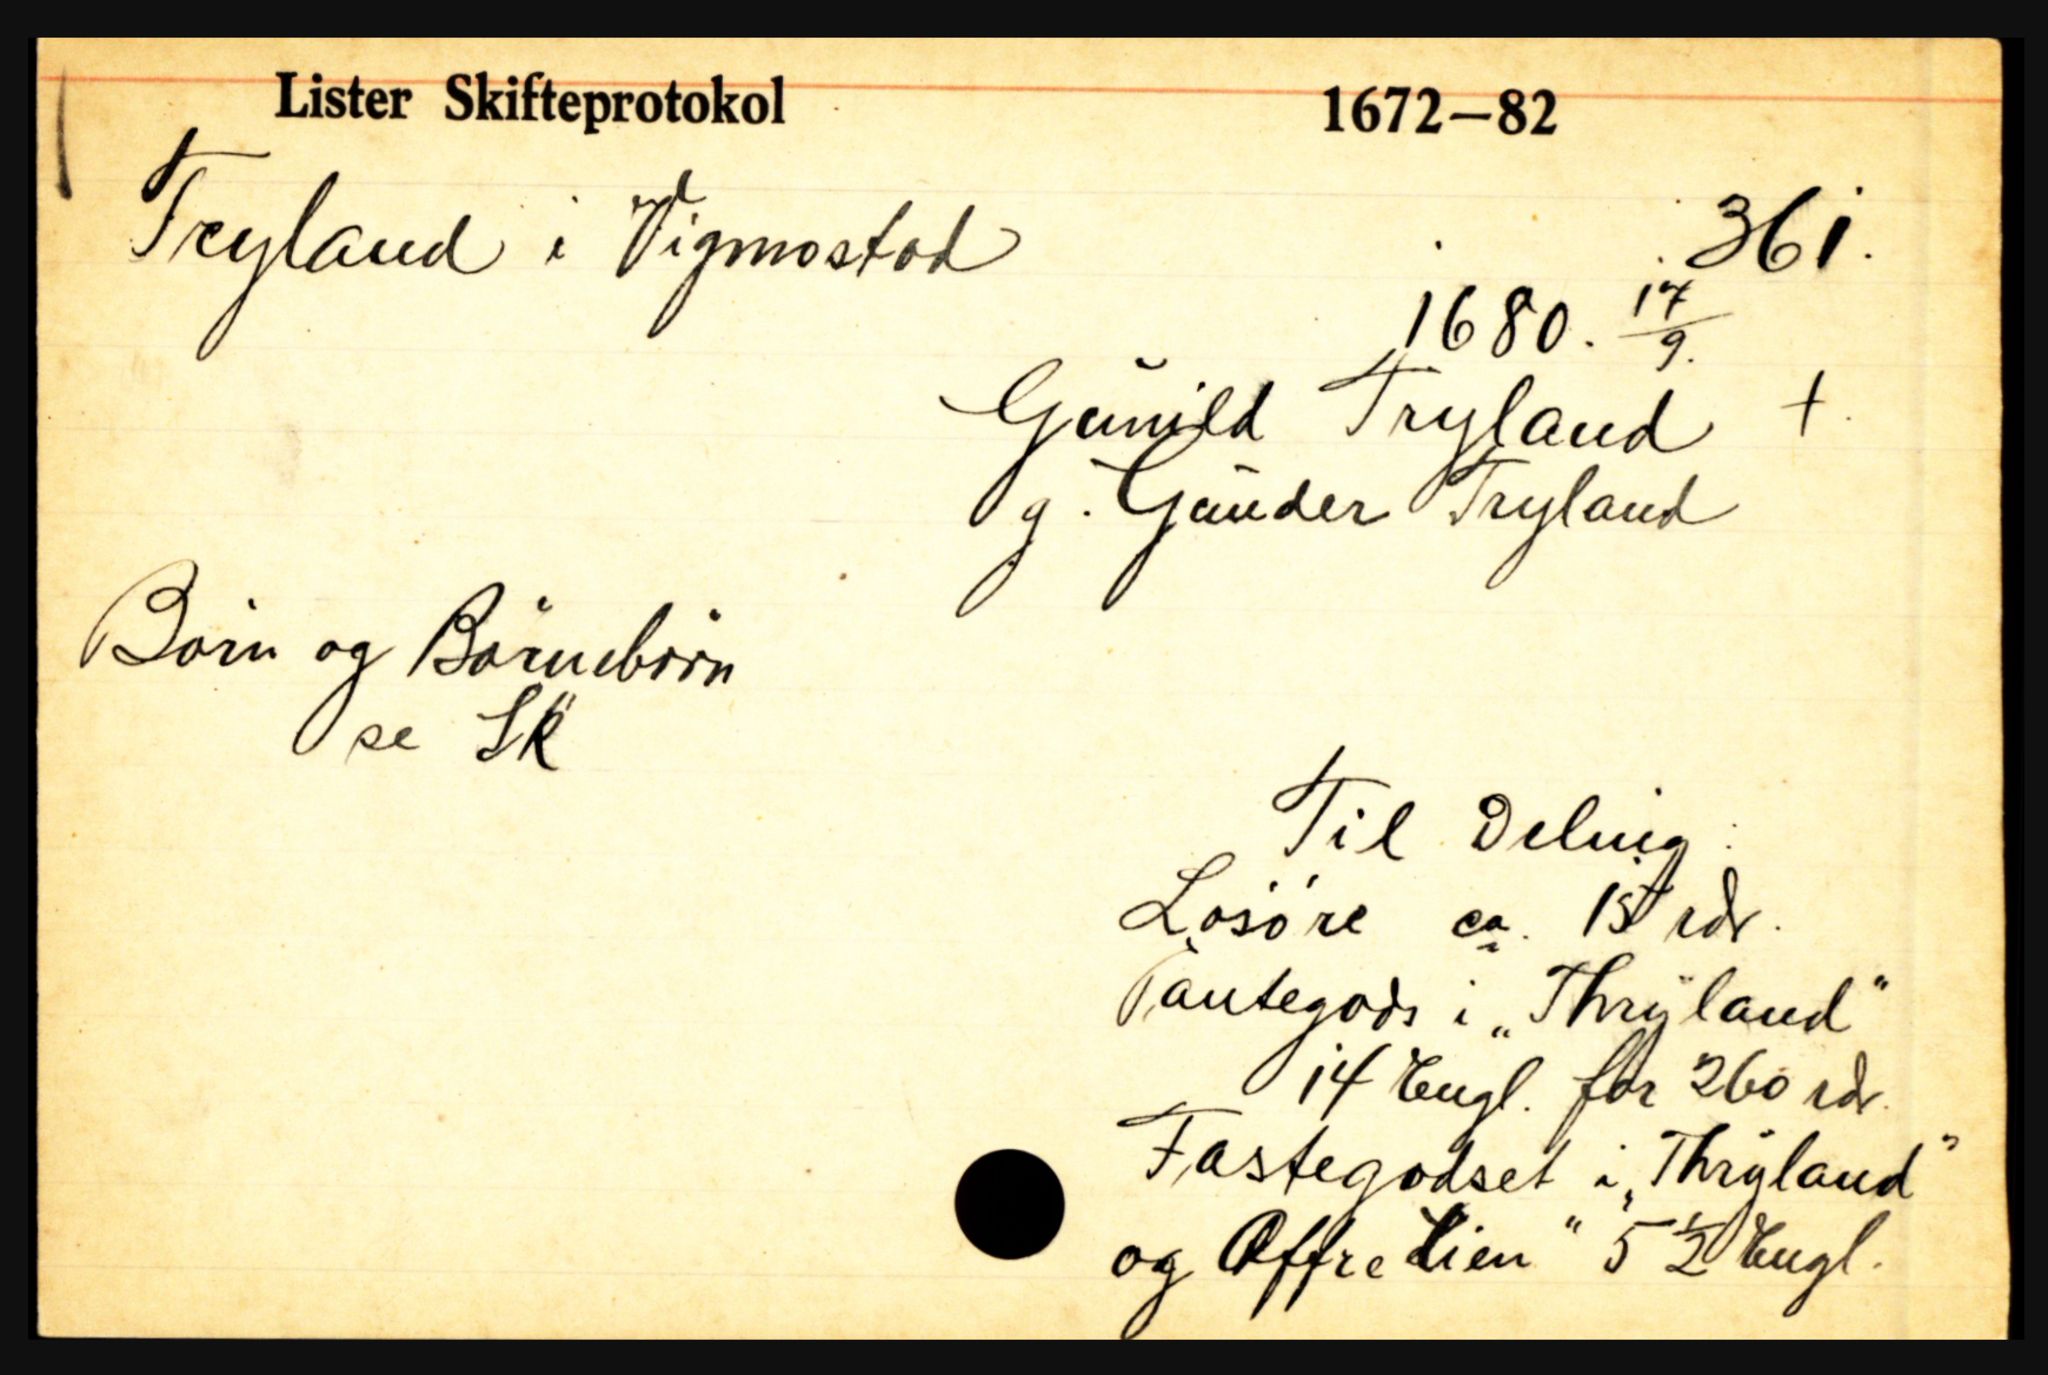 Lister Skifteprotokol 1672–82
Tryland i Vigmostad
361.
1680. 17/9.
Gunild Tryland †.
g. Gunder Tryland
Börn og Börnebörn
se Sk
Til Deling:
Losöre ca. 15 rdr.
Pantegods i „Thryland"
14 Engl. for 260 rdr.
Fastegodset i „Thryland"
og Offre Lien" 5 1/2 Engl.